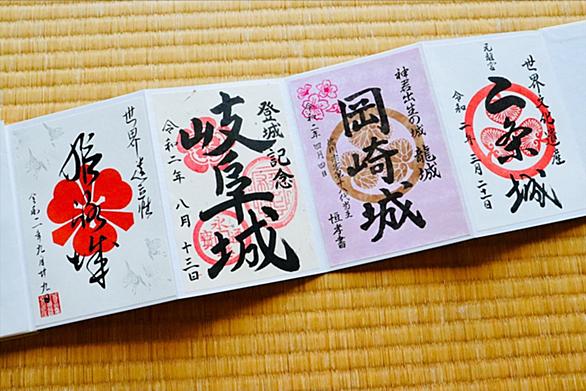 世界文化遺産
二条城
元離宮
神君出生の城 龍城
岡崎城
恒孝書
令和二年四月四日
登城記念
岐阜城
令和二年 八月十三日
世界遺産
姫路城
九月廿九日